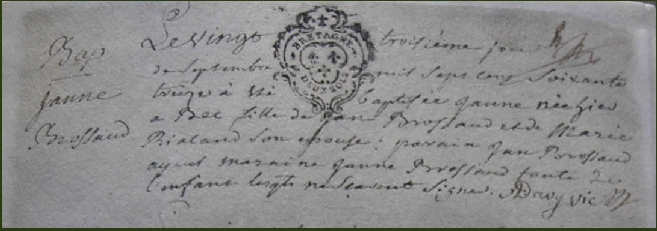 Bap
janne
Brossaud
Le vingt troisième jour
de Septembre mil sept cens Soixante
treize a été baptisée janne née hier
a Bel fille de jan Brossaud et de Marie
Rialand Son epouse: parain jan Brossaud
ayeul maraine janne Brossaud tante de
l'enfant lesqls ne Scavent Signer. Davy vic
BRETAGNE
DEUX SOLS